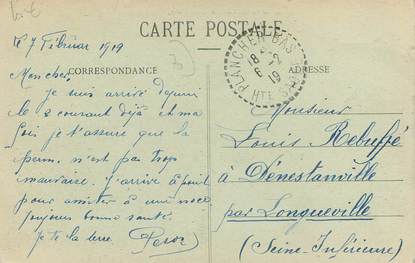 CARTE POSTALE
le 7 Février 1919
CORRESPONDANCE
ADRESSE
PLANCHER-BAS
18 - 2
6
19
HTE SAÔNE
Mon cher,
je suis arrivé depuis
le 2 courant déjà et ma
fois je t'assure que la
perm. n'est pas trop
mauvaise. J'arrive à point
pour assister à une noce
toujours bonne santé.
Je te la serre.
Monsieur
Louis Rebuffé
à Dénestanville
par Longueville
(Seine-Inférieure)